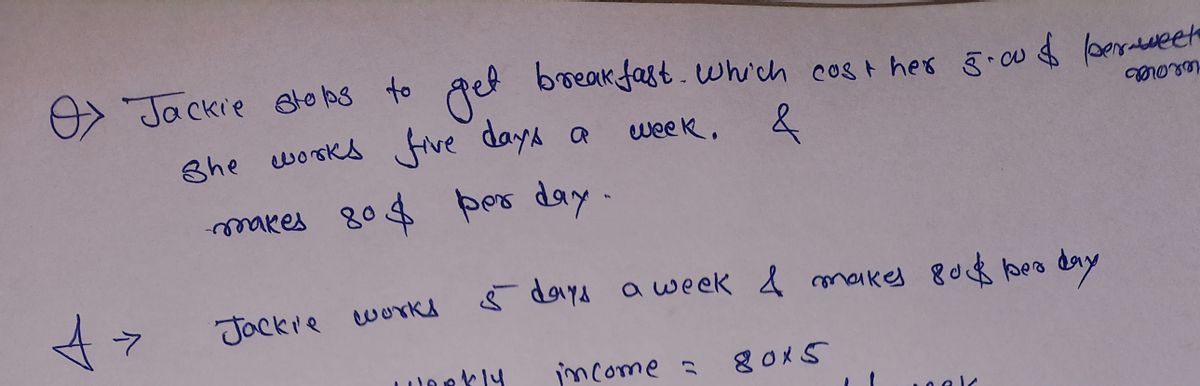 Q> Jackie stops to get breakfast. Which cost her 5.00 $ per week
morn
She works five days a week. &
makes 80 $ per day.
A → Jackie works 5 days a week & makes 80$ per day
weekly income = 80x5